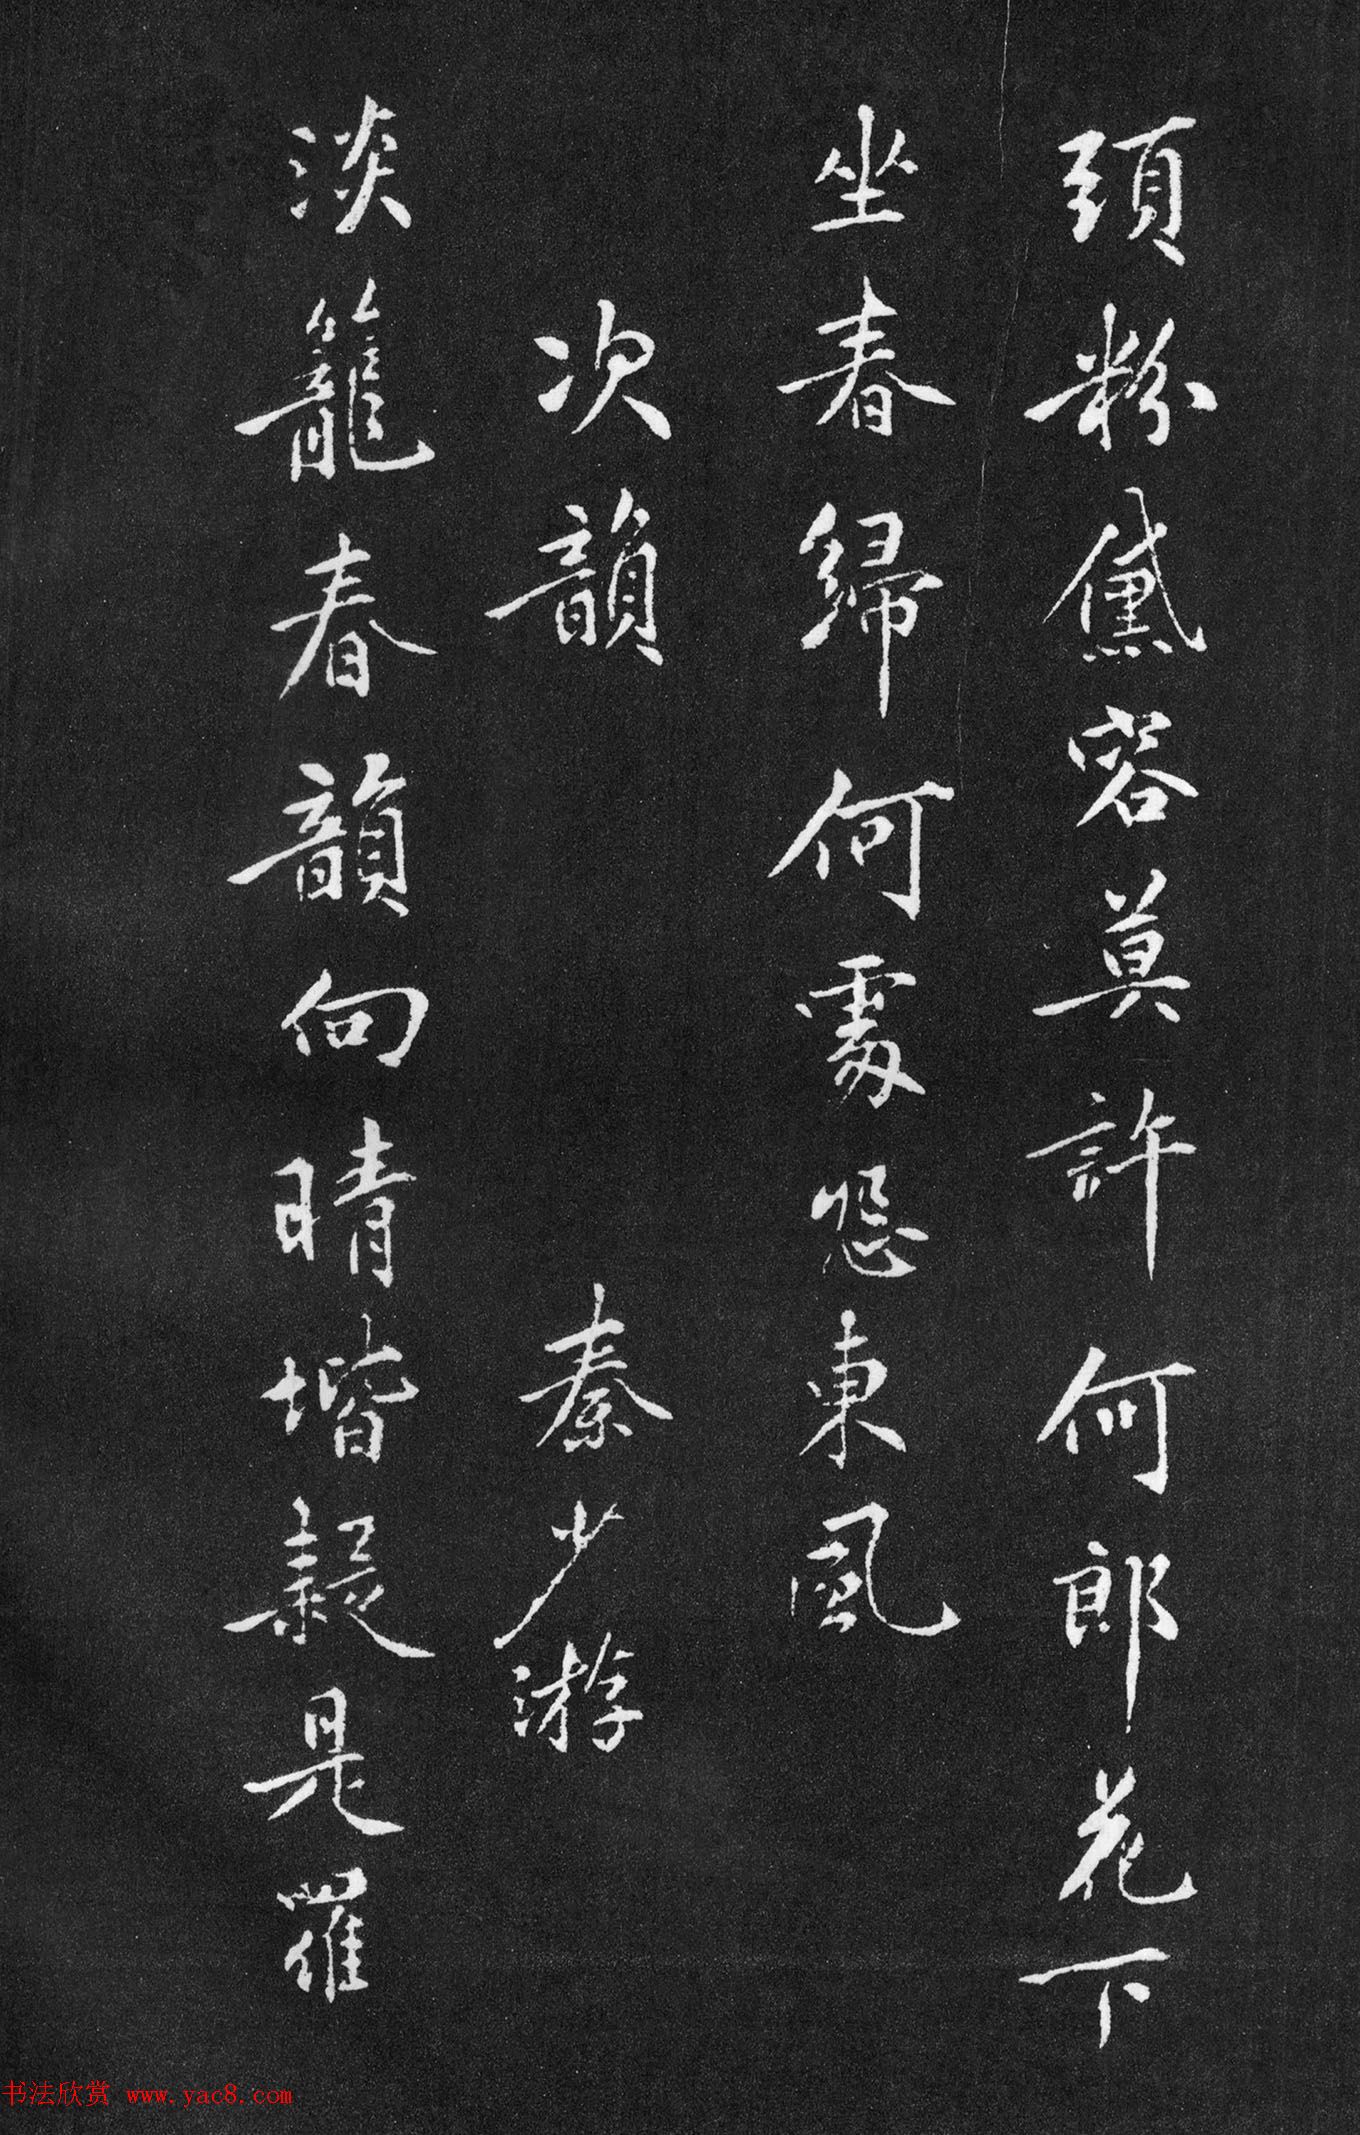 頭粉黛容莫許何郎花下
坐春歸何處怨東風
次韻 秦少游
淡籠春韻向晴堦疑是羅
书法欣赏 www.yac8.com